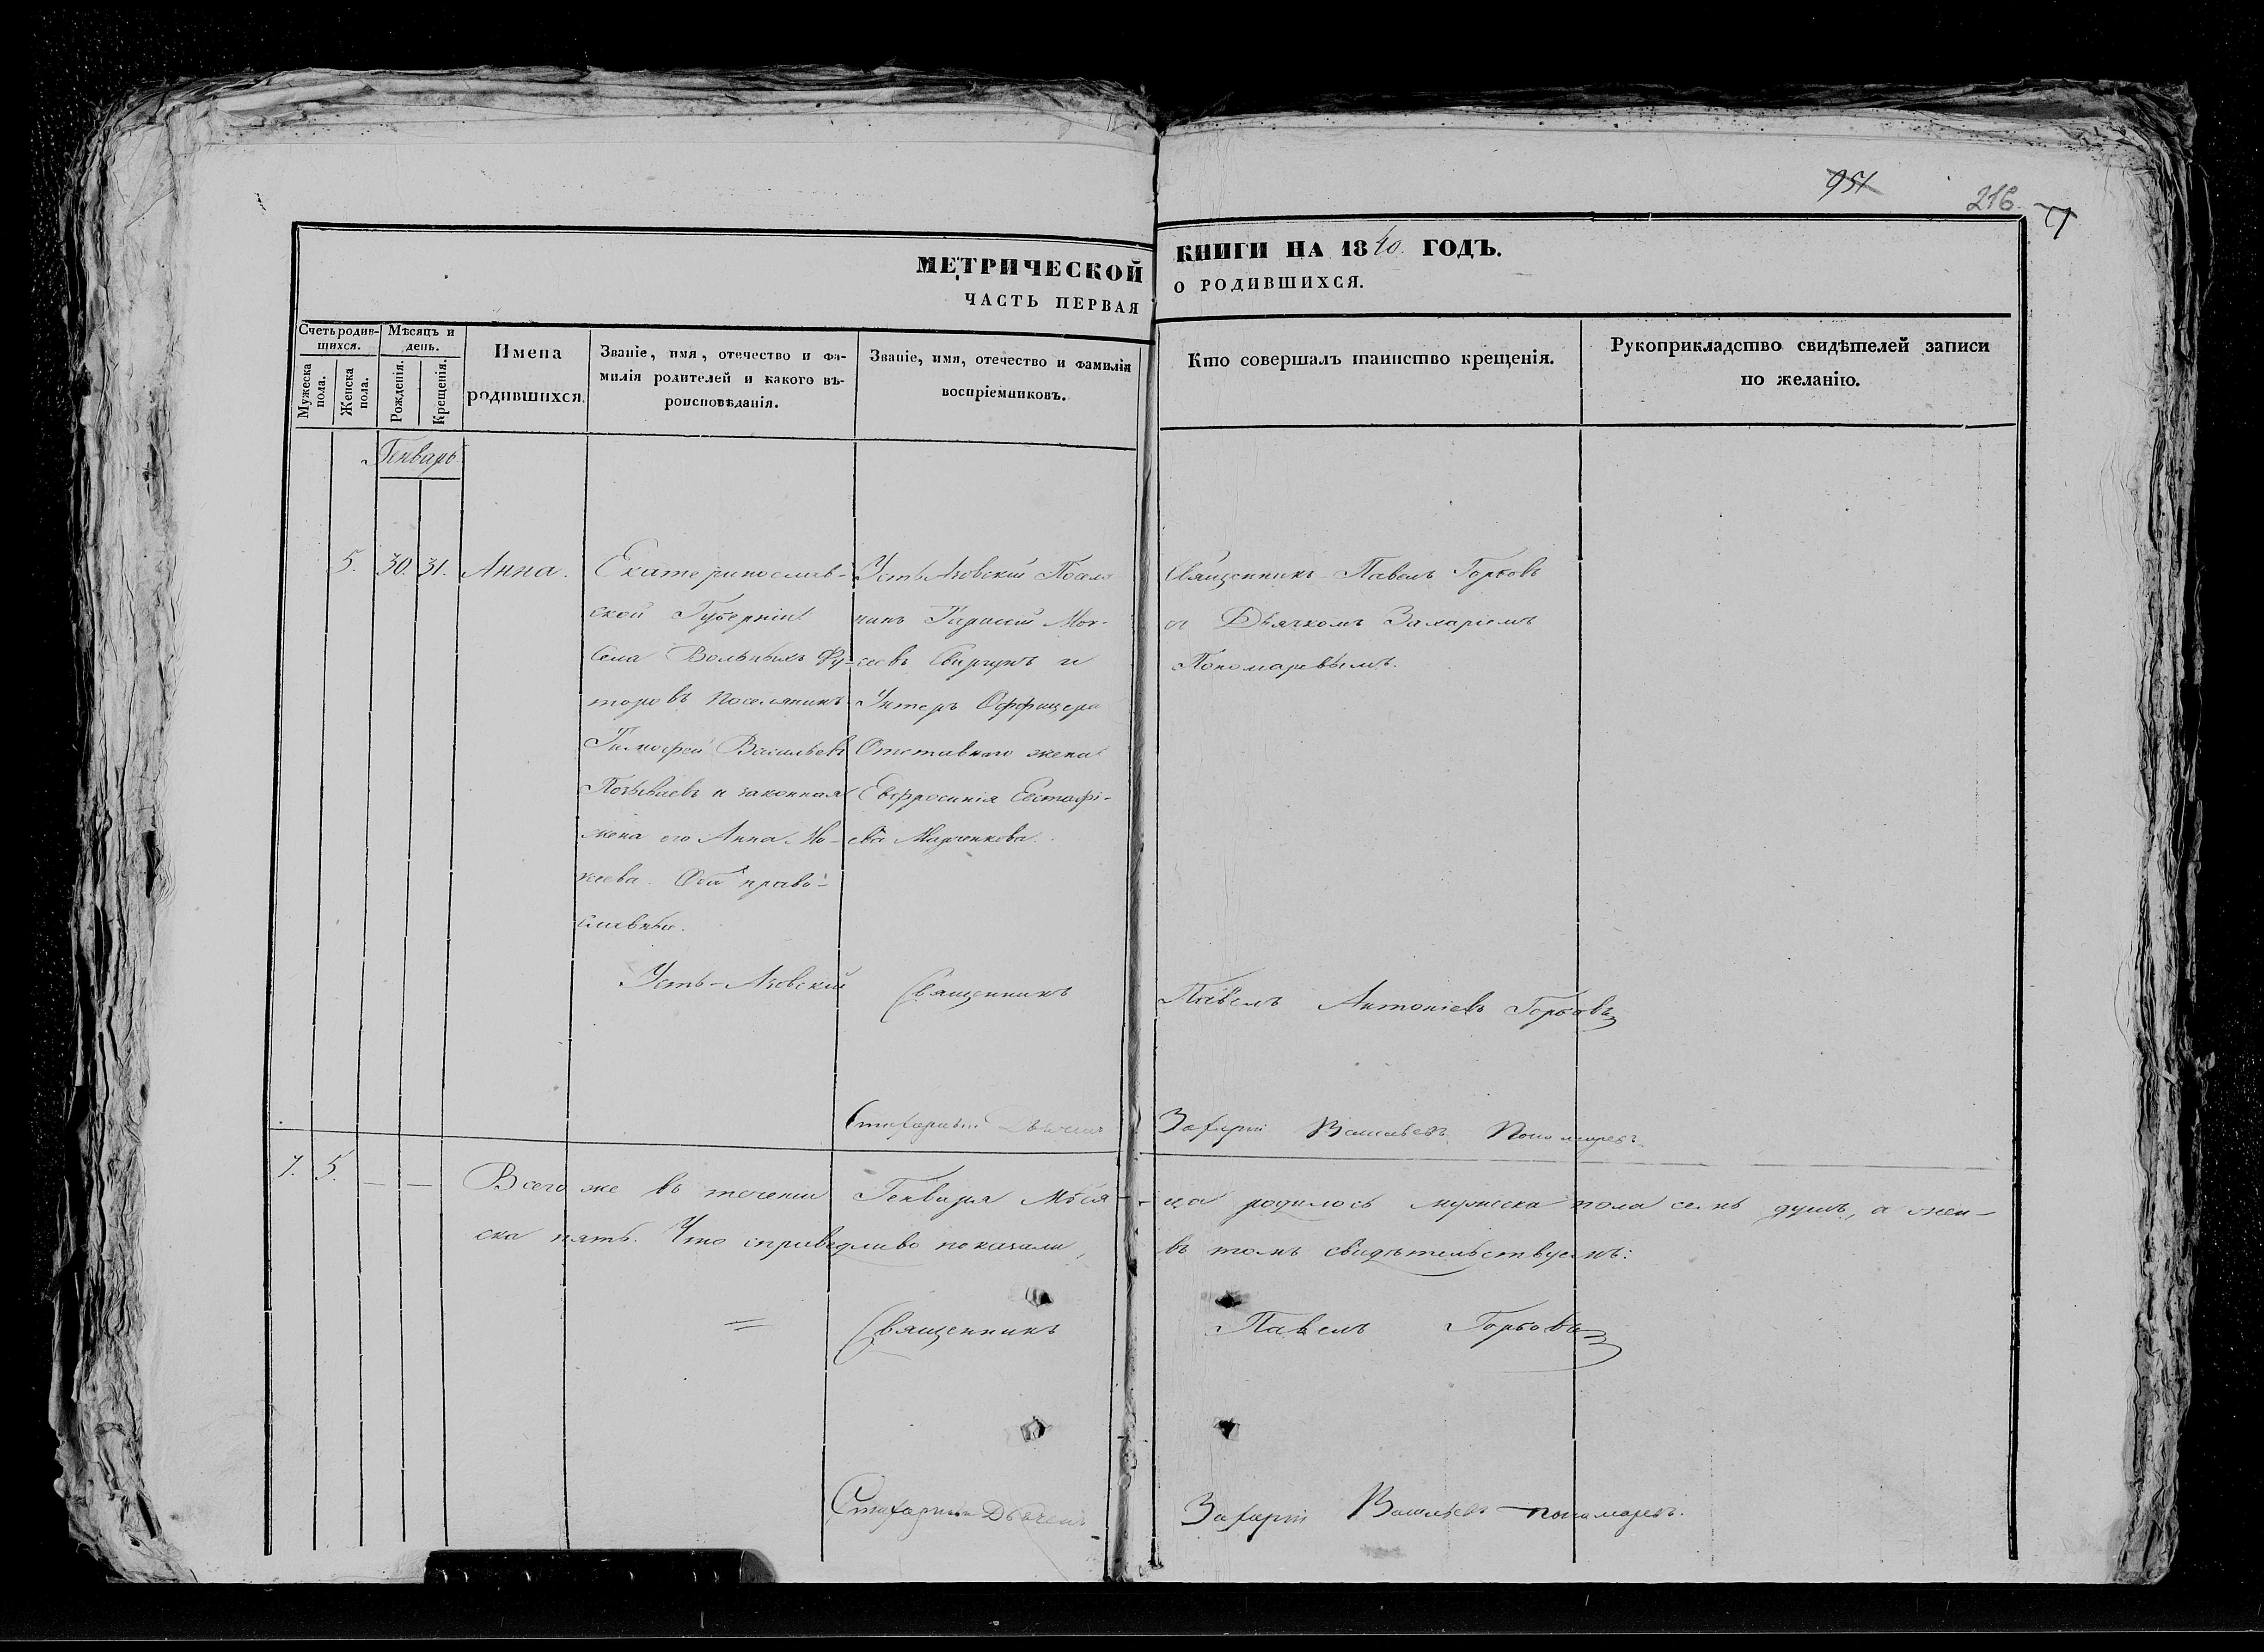 951
216.
МЕТРИЧЕСКОЙ КНИГИ НА 1840. ГОДЪ.
ЧАСТЬ ПЕРВАЯ О РОДИВШИХСЯ.
Счетъ родив-
щихся.
Мужеска
пола.
Женска
пола.
Мѣсяцъ и
день.
Рожденія.
Крещенія.
Имена
родившихся.
Званіе, имя, отечество и фа-
милія родителей и какого вѣ-
роисповѣданія.
Званіе, имя, отечество и фамилія
воспріемниковъ.
Кто совершалъ таинство крещенія.
Рукоприкладство свидѣтелей записи
по желанію.
Генварь
5. 30. 31. Анна.
Екатеринослав-
ской Губерніи
Села Вольныхъ Ху-
торовъ поселянинъ
Тимофей Васильевъ
и законная
жена его Анна Мо-
кеева. Оба право-
славные.
Усть-Азовскій Посел
нинъ Герасимъ Мои-
сеевъ Свиргунъ и
Унтеръ Оффицера
Отставнаго жена
Евфросинія Евстафі-
ева Марченкова.
Священникъ Павелъ Горбовъ
съ Дьячкомъ Захаріемъ
Пономаревымъ.
Усть-Азовскій Священникъ Павелъ Антоніевъ Горбовъ
Дьячекъ Захарій Васильевъ Пономаревъ.
7. 5. — — Всего же въ теченіи Генваря Мѣся- -ца родилось мужеска пола семь душъ, а жен-
ска пять. Что справедливо показали, въ томъ свидѣтельствуемъ:
= Священникъ Павелъ Горбовъ
Дьячекъ Захарій Васильевъ Пономаревъ.